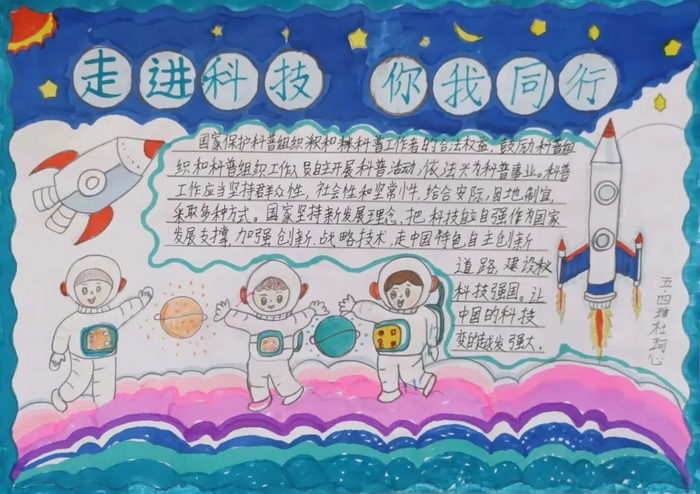 走进科技 你我同行
国家保护科普组织积和秣科普工作者的合法权益,鼓励科普组
织和科普组织工作人员自主开展科普活动,依法兴为科普事业。科普
工作应当坚持群众性,社会性和坚常小牛,给合安际,因地制宜,
采取多种方式。国家坚持新发展理念、把科技自立自强作为国家
发展支撑,加强创新、战略技术,走中国特色自主创新
道路,建设
科技强国。让
中国的科技
变的越发强大。
五.四班杜珂心